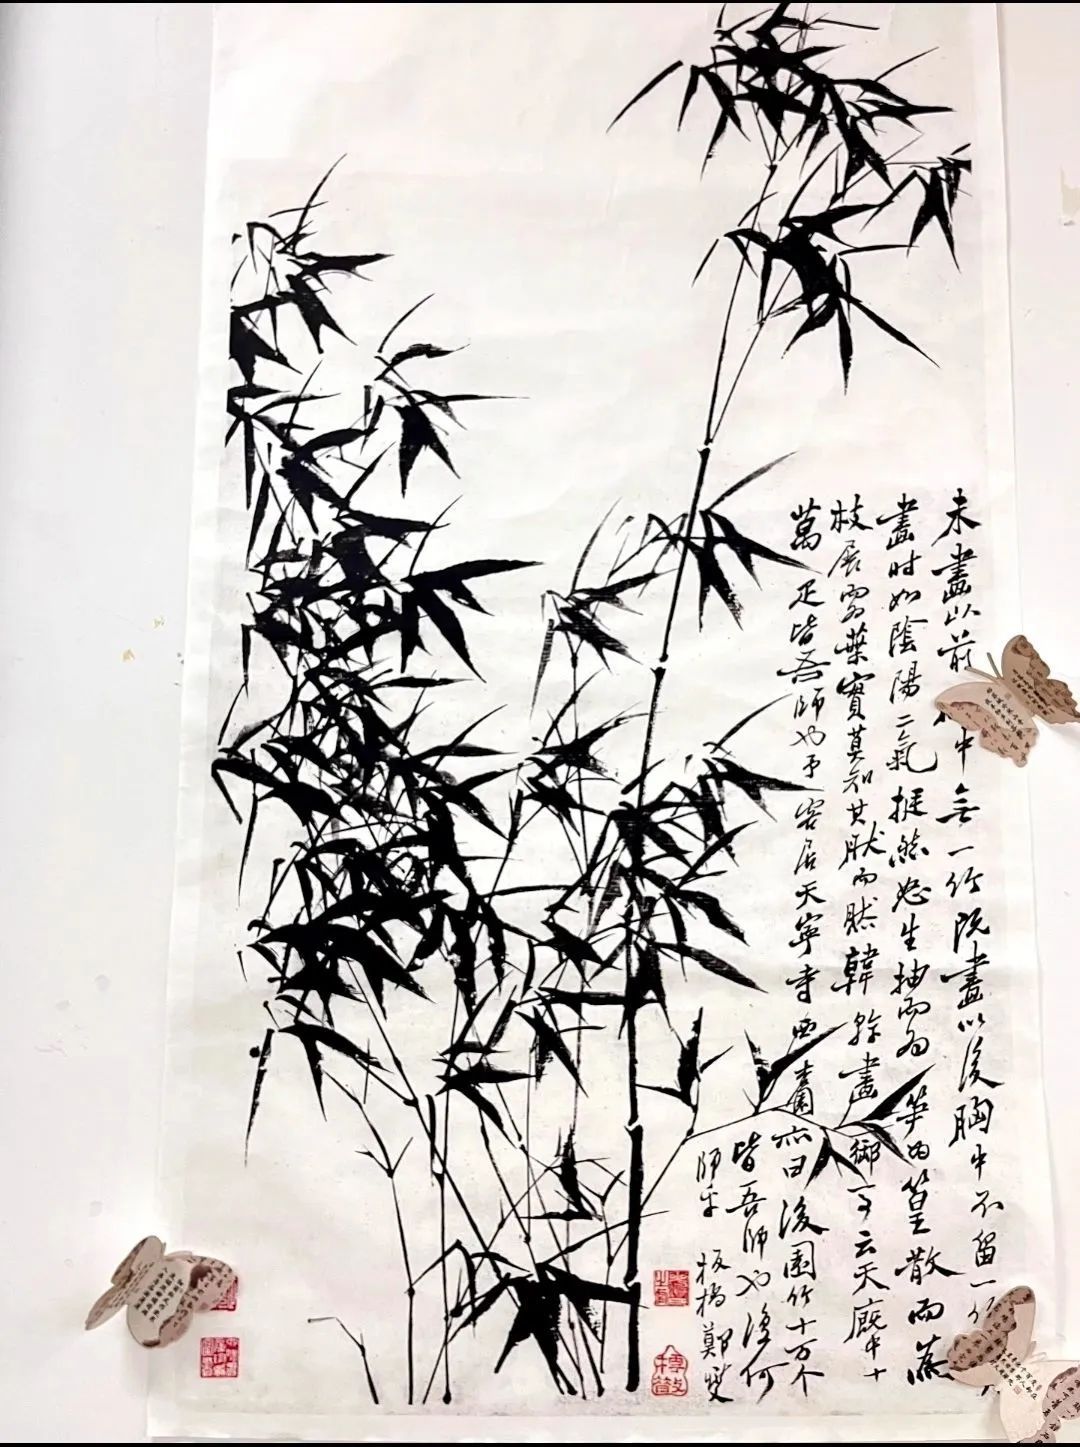 未畫以前中無一竹既畫以後胸中不留一
畫时如陰陽二氣挺然怒生抽而為笋為篁散而為
枝展而為葉實莫知其然而然韓幹畫御馬云天廄中十
萬疋皆吾師也予客居天寧寺西杏園亦曰後園竹十万个
皆吾師也復何
師乎 板橋鄭燮
樗散